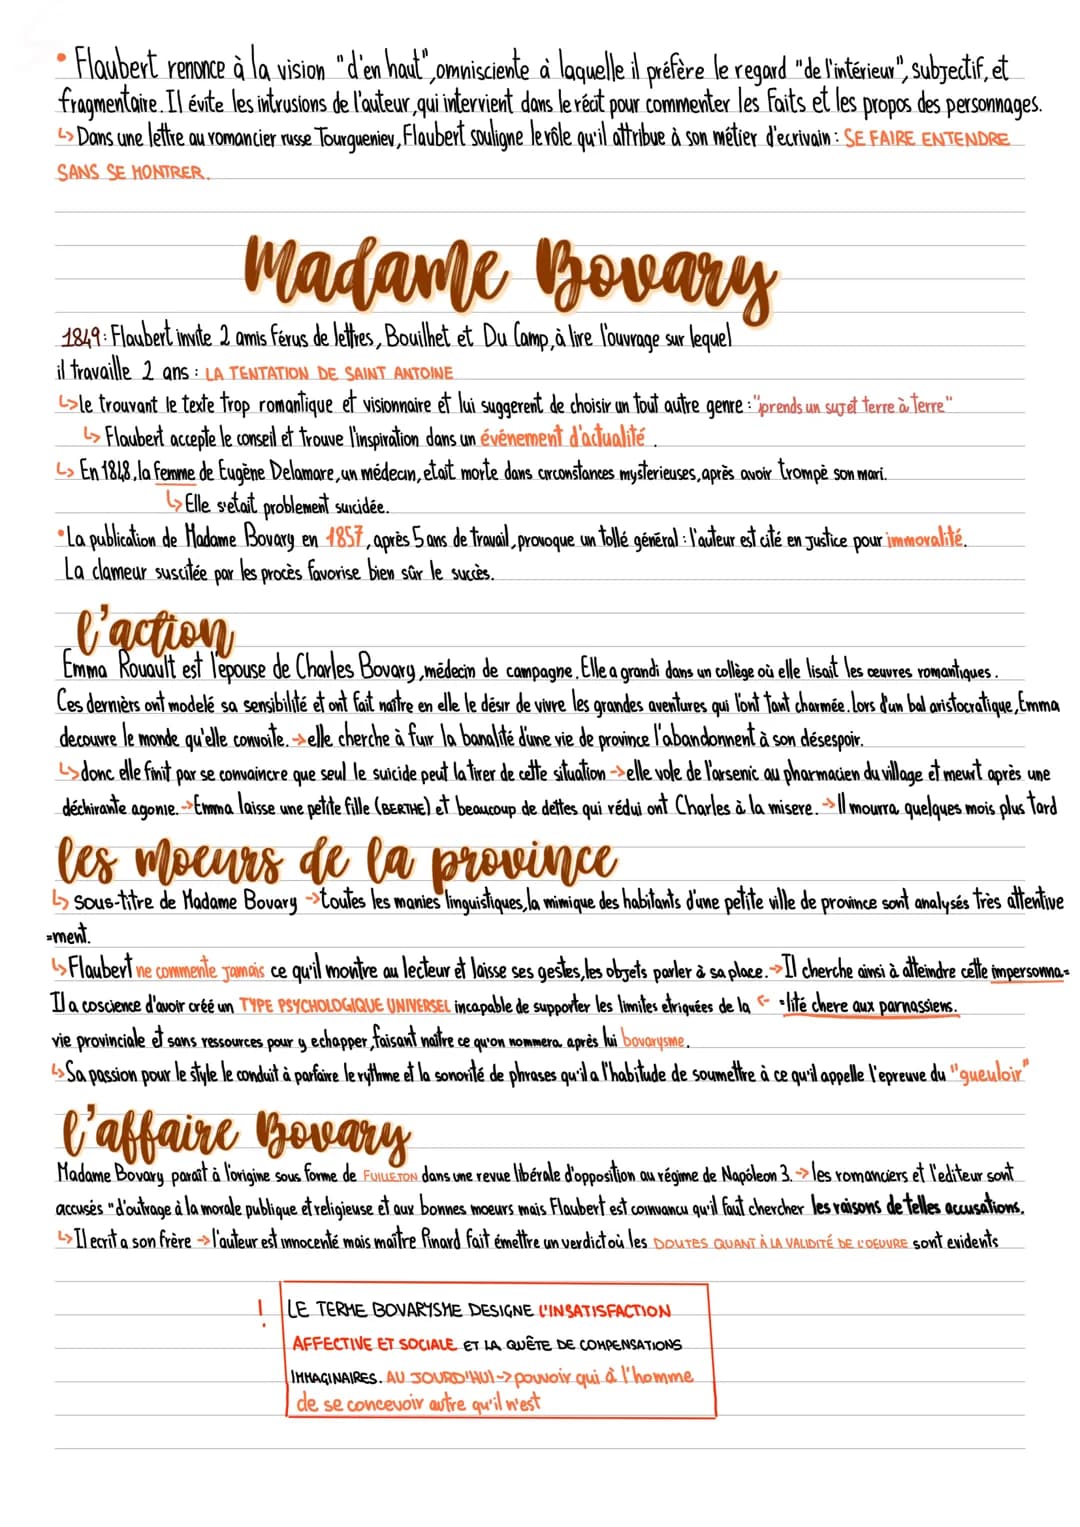 • Flaubert renonce à la vision "d'en haut", omnisciente à laquelle il préfère le regard "de l'intérieur", subjectif, et
fragmentaire. Il évite les intrusions de l'auteur, qui intervient dans le récit pour commenter les faits et les propos des personnages.
↳ Dans une lettre au romancier russe Tourgueniev, Flaubert souligne le rôle qu'il attribue à son métier d'ecrivain : SE FAIRE ENTENDRE
SANS SE MONTRER.
Madame Bovary
1849: Flaubert invite 2 amis férus de lettres, Bouilhet et Du Camp, à lire l'ouvrage sur lequel
il travaille 2 ans : LA TENTATION DE SAINT ANTOINE
↳ le trouvant le texte trop romantique et visionnaire et lui suggerent de choisir un tout autre genre : "prends un sujet terre à terre"
↳ Flaubert accepte le conseil et trouve l'inspiration dans un événement d'actualité.
↳ En 1848, la femme de Eugène Delamare, un médecin, etait morte dans circonstances mysterieuses, après avoir trompè son mari.
↳ Elle s'etait problement suicidée.
• La publication de Madame Bovary en 1857, après 5 ans de travail, provoque un tollé général : l'auteur est cité en justice pour immoralité.
La clameur suscitée par les procès favorise bien sûr le succès.
l'action
Emma Rouault est l'epouse de Charles Bovary, médecin de campagne. Elle a grandi dans un collège où elle lisait les œuvres romantiques.
Ces dernièrs ont modelé sa sensibilité et ont fait naître en elle le désir de vivre les grandes aventures qui l'ont tant charmée. Lors d'un bal aristocratique, Emma
decouvre le monde qu'elle convoite. → elle cherche à fuir la banalité d'une vie de province l'abandonnent à son désespoir.
↳ donc elle finit par se convaincre que seul le suicide peut la tirer de cette situation → elle vole de l'arsenic au pharmacien du village et meurt après une
déchirante agonie. → Emma laisse une petite fille (BERTHE) et beaucoup de dettes qui rédui ont Charles à la misere. → Il mourra quelques mois plus tard
les moeurs de la province
↳ Sous-titre de Madame Bovary → toutes les manies linguistiques, la mimique des habitants d'une petite ville de province sont analysés très attentive
=ment.
↳ Flaubert ne commente jamais ce qu'il montre au lecteur et laisse ses gestes, les objets parler à sa place. → Il cherche ainsi à atteindre cette impersonna=
Il a coscience d'avoir créé un TYPE PSYCHOLOGIQUE UNIVERSEL incapable de supporter les limites etriquées de la ← =lité chere aux parnassiens.
vie provinciale et sans ressources pour y echapper, faisant naître ce qu'on nommera après lui bovarysme.
↳ Sa passion pour le style le conduit à parfaire le rythme et la sonorité de phrases qu'il a l'habitude de soumettre à ce qu'il appelle l'epreuve du "gueuloir"
l'affaire Bovary
Madame Bovary paraît à l'origine sous forme de FUILLETON dans une revue libérale d'opposition au régime de Napóleon 3. → les romanciers et l'editeur sont
accusés "d'outrage à la morale publique et religieuse et aux bonnes moeurs mais Flaubert est coinvancu qu'il faut chercher les raisons de telles accusations.
↳ Il ecrit a son frère → l'auteur est innocenté mais maître Pinard fait émettre un verdict où les DOUTES QUANT À LA VALIDITÉ DE L'OEUVRE sont evidents
! LE TERME BOVARYSME DESIGNE L'INSATISFACTION
AFFECTIVE ET SOCIALE ET LA QUÊTE DE COMPENSATIONS
IMMAGINAIRES. AU JOURD'HUI → pouvoir qui à l'homme
de se concevoir autre qu'il n'est